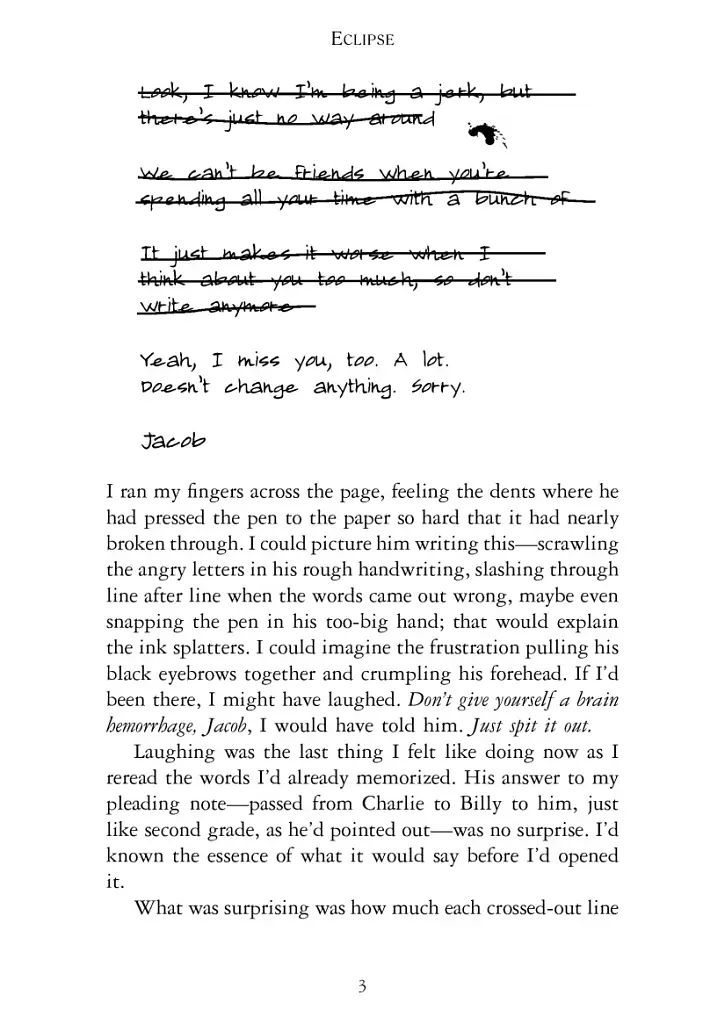 ECLIPSE
Look, I know I'm being a jerk, but
there's just no way around
We can't be friends when you're
spending all your time with a bunch of
It just makes it worse when I
think about you too much, so don't
write anymore
Yeah, I miss you, too. A lot.
Doesn't change anything. Sorry.
Jacob
I ran my fingers across the page, feeling the dents where he
had pressed the pen to the paper so hard that it had nearly
broken through. I could picture him writing this—scrawling
the angry letters in his rough handwriting, slashing through
line after line when the words came out wrong, maybe even
snapping the pen in his too-big hand; that would explain
the ink splatters. I could imagine the frustration pulling his
black eyebrows together and crumpling his forehead. If I'd
been there, I might have laughed. Don't give yourself a brain
hemorrhage, Jacob, I would have told him. Just spit it out.
Laughing was the last thing I felt like doing now as I
reread the words I'd already memorized. His answer to my
pleading note—passed from Charlie to Billy to him, just
like second grade, as he'd pointed out—was no surprise. I'd
known the essence of what it would say before I'd opened
it.
What was surprising was how much each crossed-out line
3